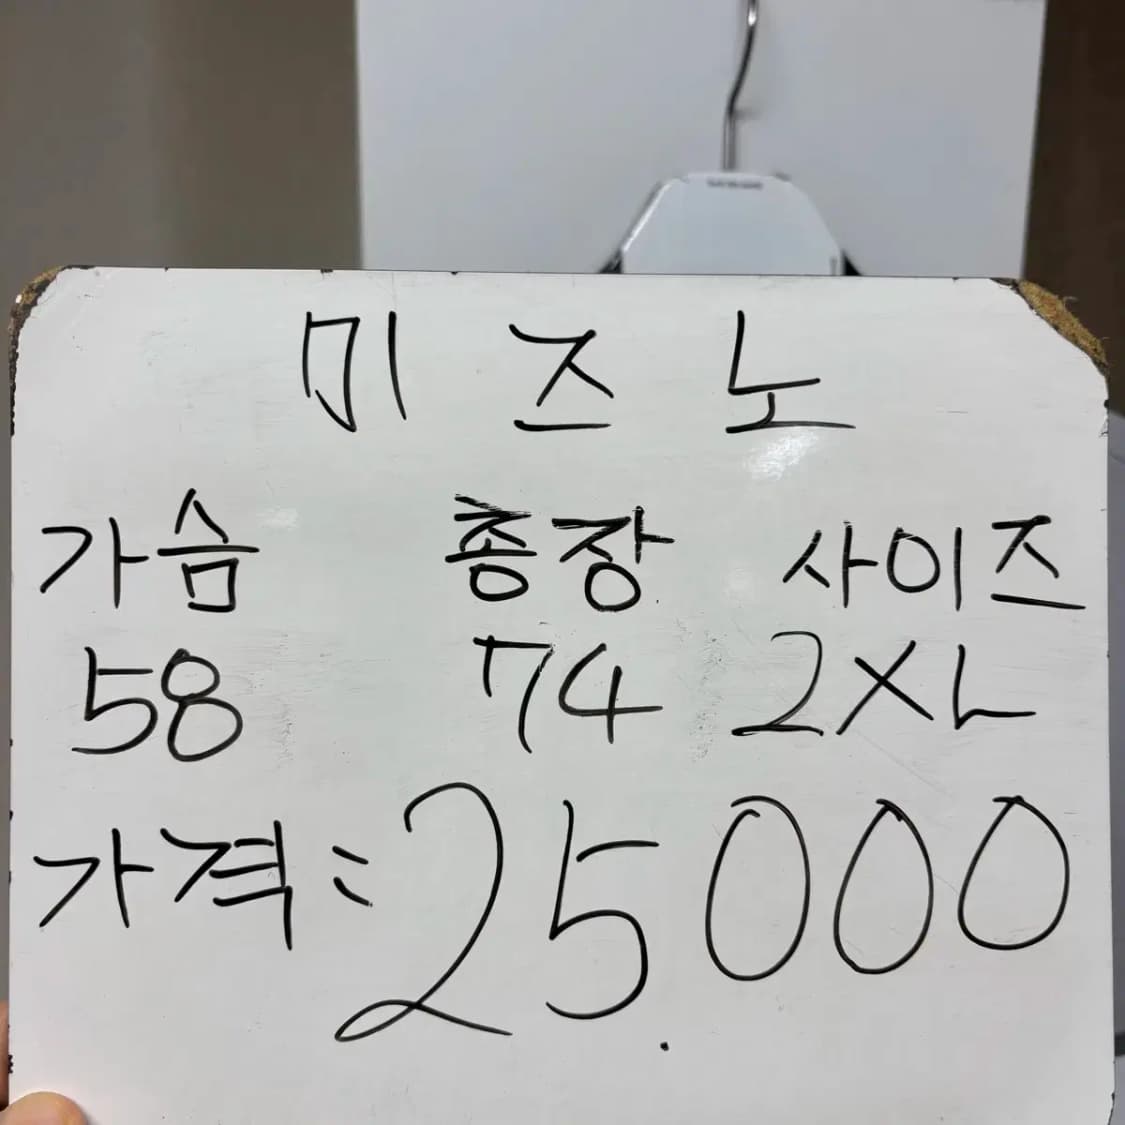 미즈노
가슴 총장 사이즈
58 74 2XL
가격: 25.000